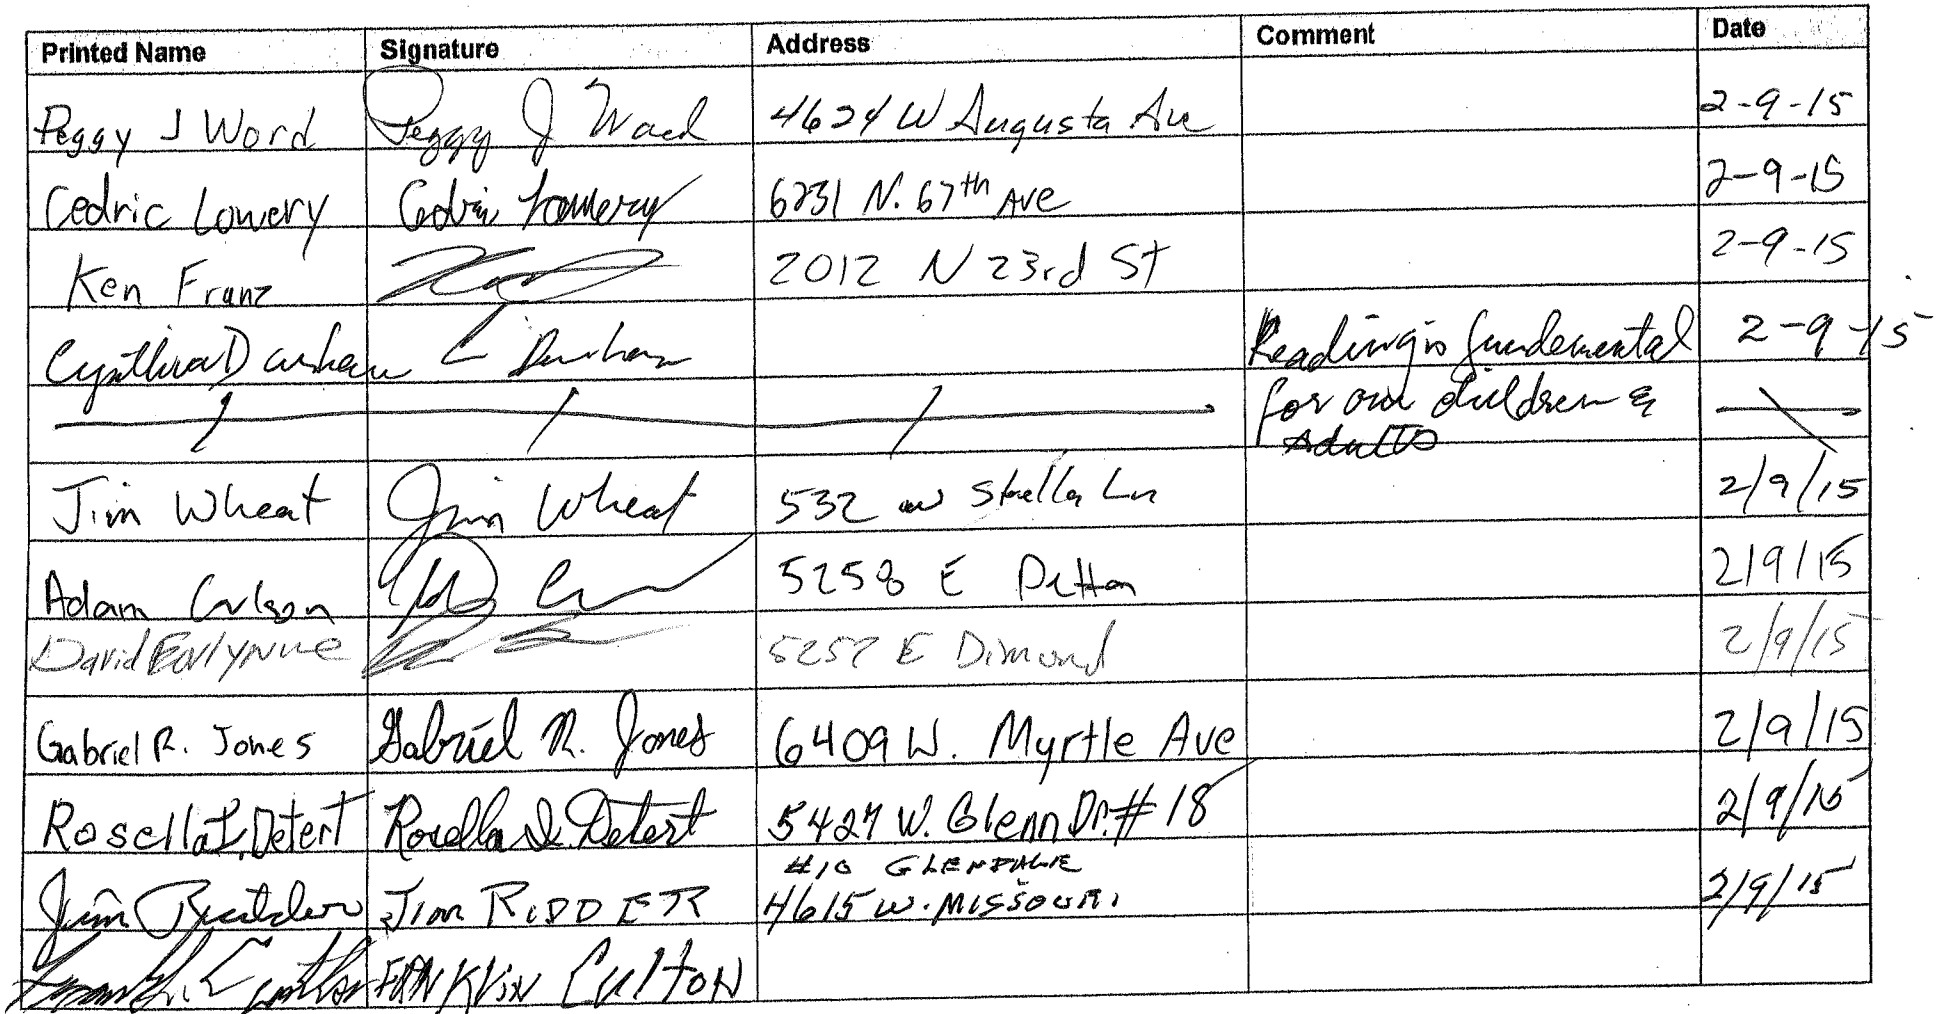 Printed Name Signature Address Comment Date
Peggy J Word Peggy J Word 4624 W Augusta Ave 2-9-15
Cedric Lowery Cedric Lowery 6231 N. 67th Ave 2-9-15
Ken Franz 2012 N 23rd St 2-9-15
Cynthia Durham C Durham Reading is fundemental 2-9-15
for our children &
Adults
Jim Wheat Jim Wheat 532 w Stella Ln 2/9/15
Adam Carlson 5258 E 2/9/15
David 5257 E Dimond 2/9/15
Gabriel R. Jones Gabriel R. Jones 6409 W. Myrtle Ave 2/9/15
Rosella I. Detert Rosella I. Detert 5427 W. Glenn Dr. #18 2/9/15
#10 GLENDALE
Jim Ridder Jim RIDDER 4615 W. MISSOURI 2/9/15
FRANKlin Culton